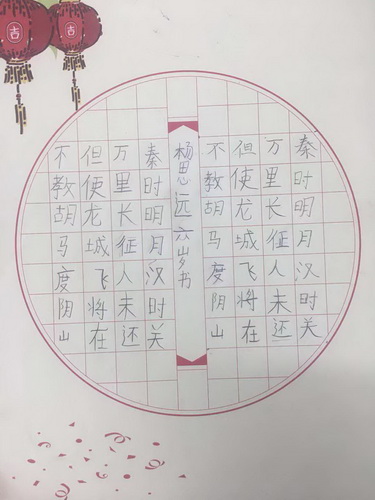 吉
吉
秦时明月汉时关
万里长征人未还
但使龙城飞将在
不教胡马度阴山
杨思远六岁书
秦时明月汉时关
万里长征人未还
但使龙城飞将在
不教胡马度阴山